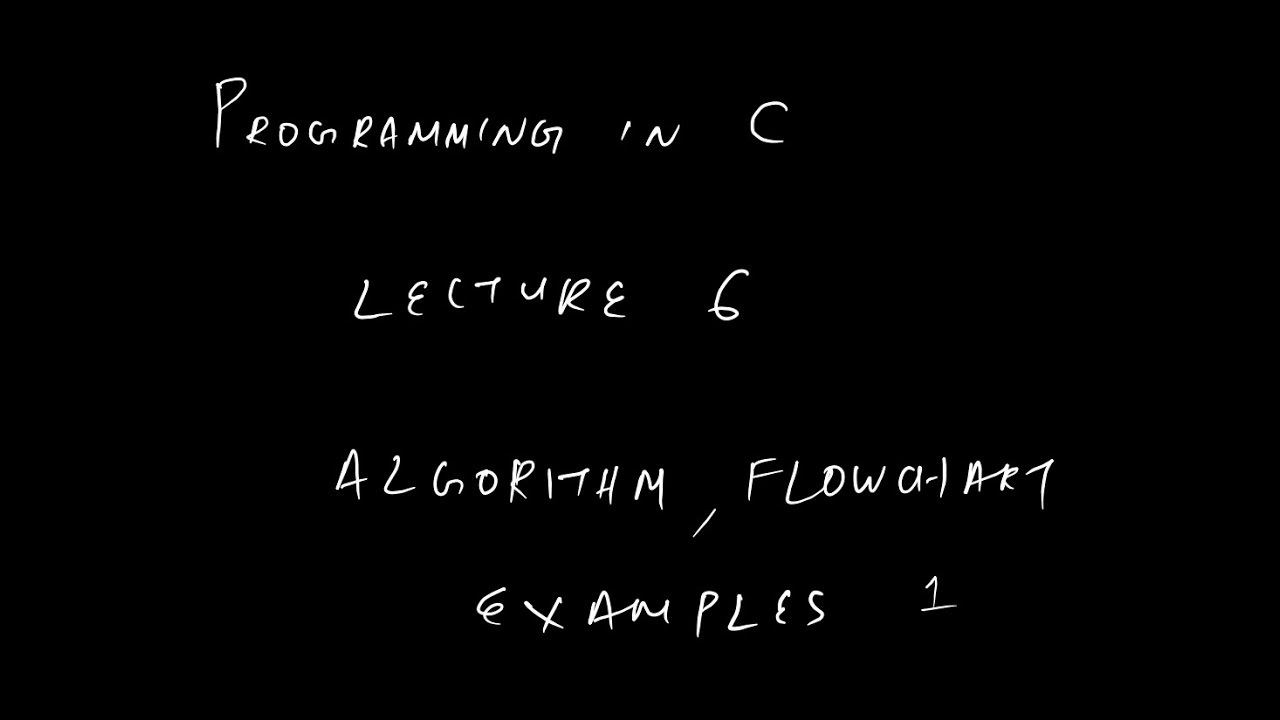 PROGRAMMING IN C
LECTURE 6
ALGORITHM, FLOWCHART
EXAMPLES 1